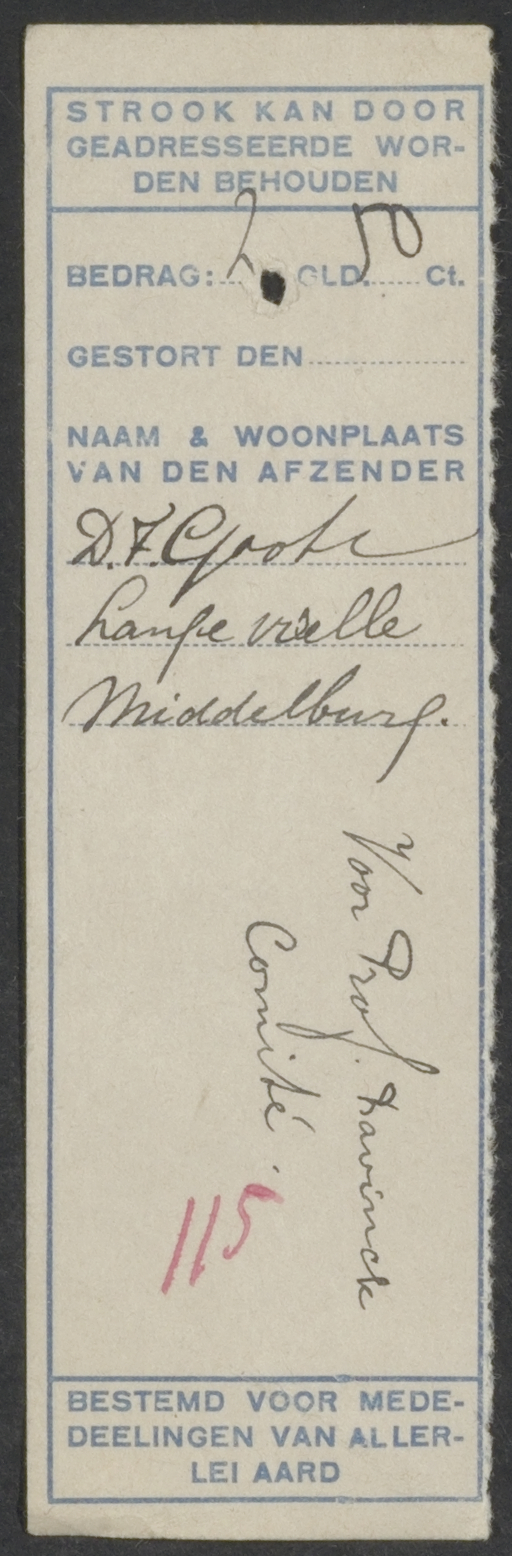 STROOK KAN DOOR
GEADRESSEERDE WOR-
DEN BEHOUDEN
BEDRAG: 2 GLD. 50 Ct.
GESTORT DEN
NAAM & WOONPLAATS
VAN DEN AFZENDER
D. F. Groote
Lange vielle
Middelburg.
Voor Prof. Lavinck
Comité.
115
BESTEMD VOOR MEDE-
DEELINGEN VAN ALLER-
LEI AARD